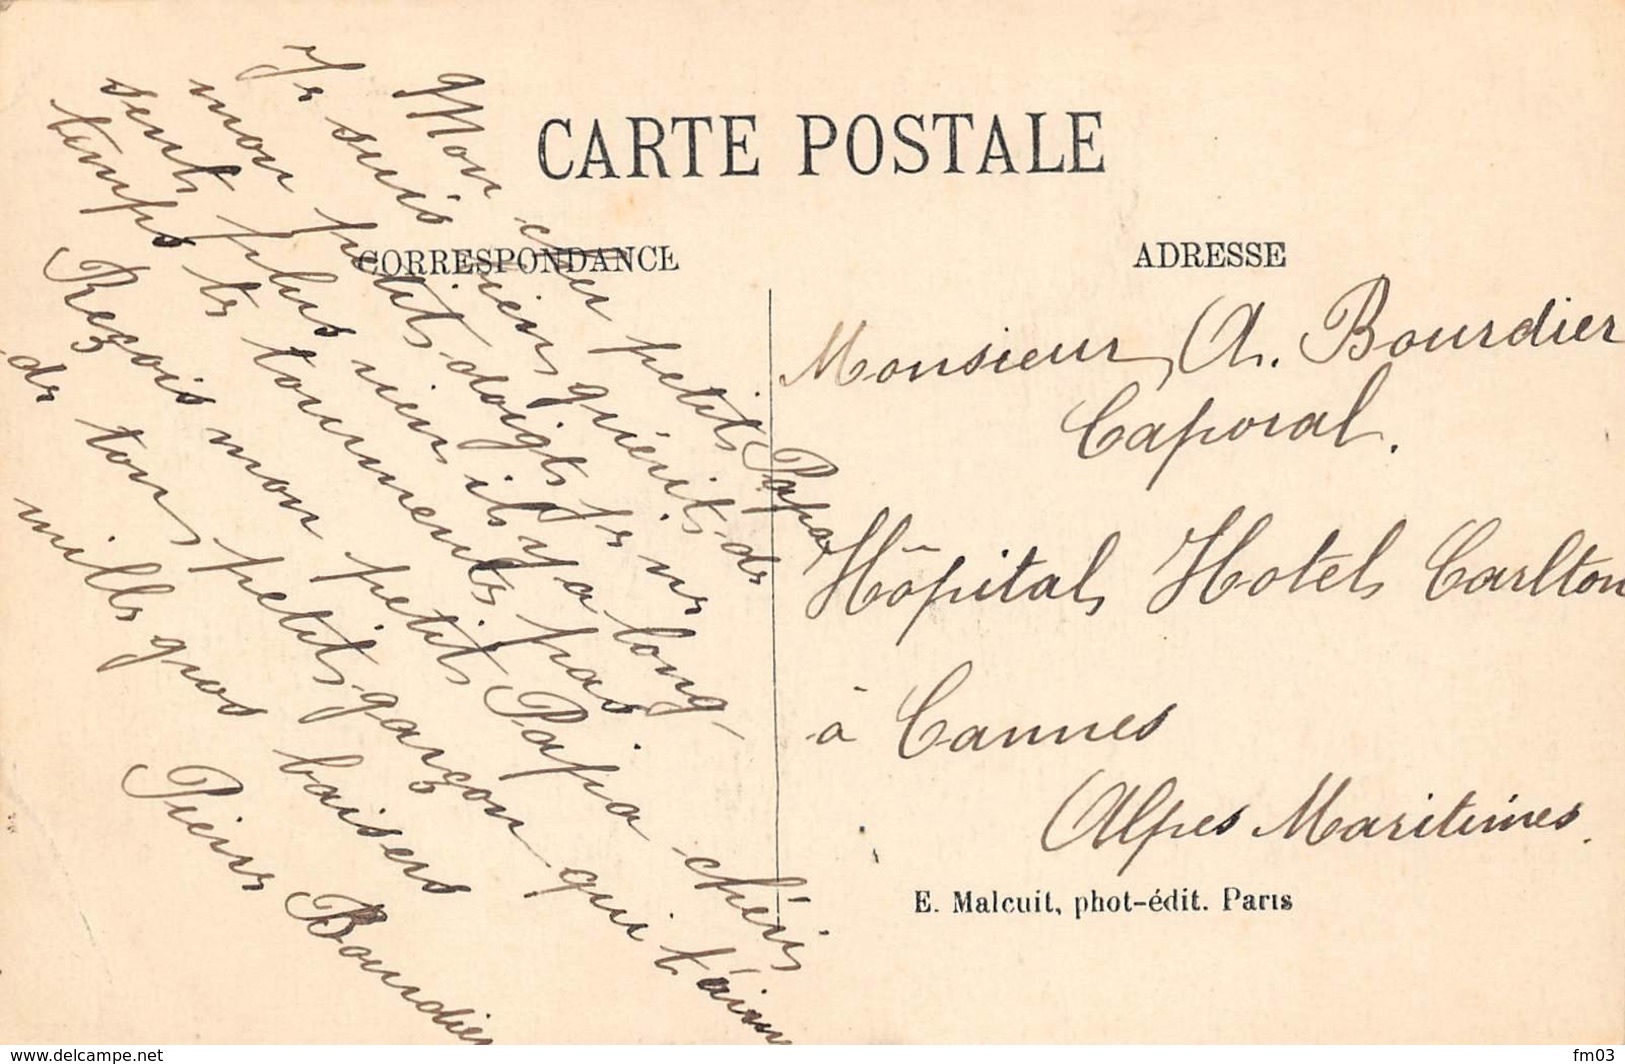 CARTE POSTALE
CORRESPONDANCE
ADRESSE
Mon cher petit Papa
Je suis bien guérit de
mon petit doigt je ne
sent plus rien il y a long-
temps te tourments pas
Reçois mon petit Papa chéri
de ton petit garçon qui t'aime
mille gros baisers
Pierre Bourdier
Monsieur A. Bourdier
Caporal.
Hôpital Hotel Carlton
à Cannes
Alpes Maritimes.
E. Malcuit, phot-édit. Paris
www.delcampe.net
fm03